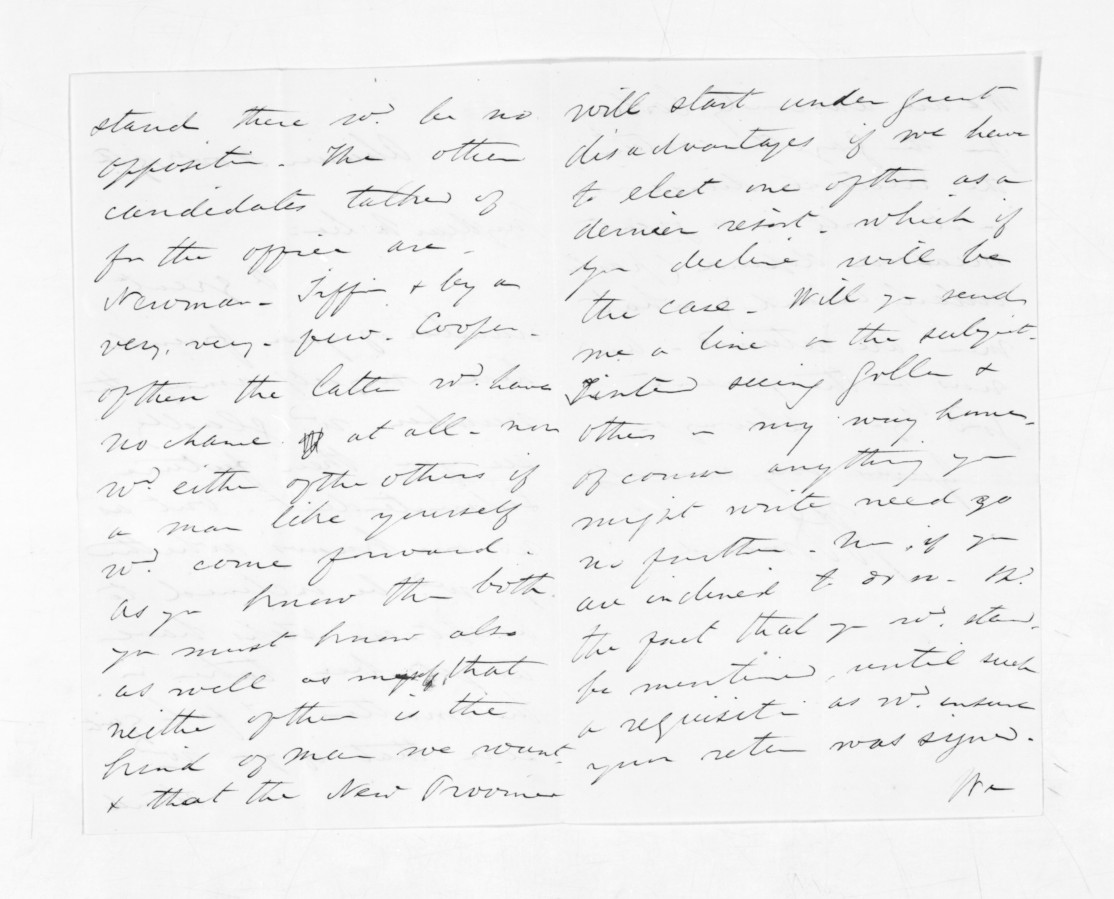 stand there wd. be no
opposition. The other
candidates talked of
for the office are -
Newman - Tiffin & by a
very, very - few - Cooper -
of them the latter wd. have
no chance at all - nor
wd. either of the others if
a man like yourself
wd. come forward -
as you know them both
you must know also
as well as myself, that
neither of them is the
kind of man we want
& that the New Province
will start under great
disadvantages if we have
to elect one of them as a
dernier resort - which if
you decline will be
the case - Will you send
me a line on the subject -
I intend seeing Gollan &
others on my way home -
of course anything you
might write need go
no further - Nor, if you
are inclined to do so - wd.
the fact that you wd. stand
be mentioned, until such
a requisition as wd. insure
your return was signed -
We